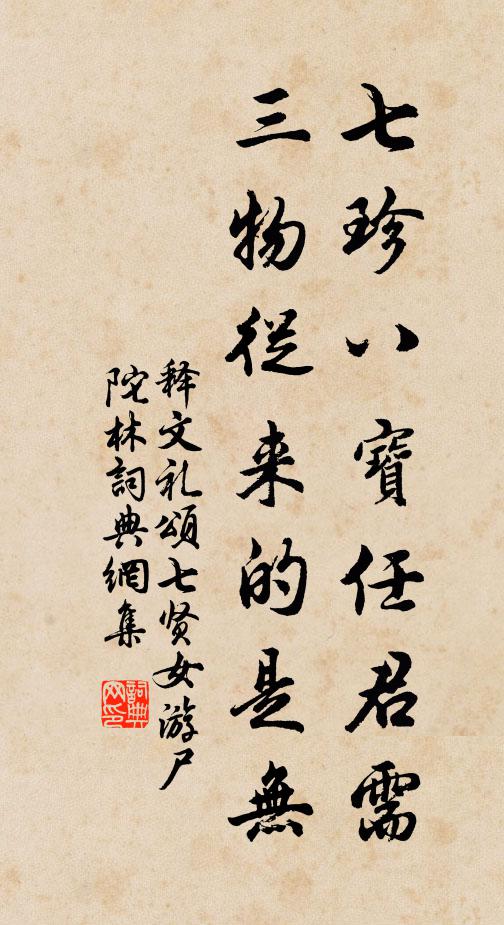 七珍八寶任君需
三物從来的是無
释文礼頌七贤女游尸
陀林詞典網集
詞典网印